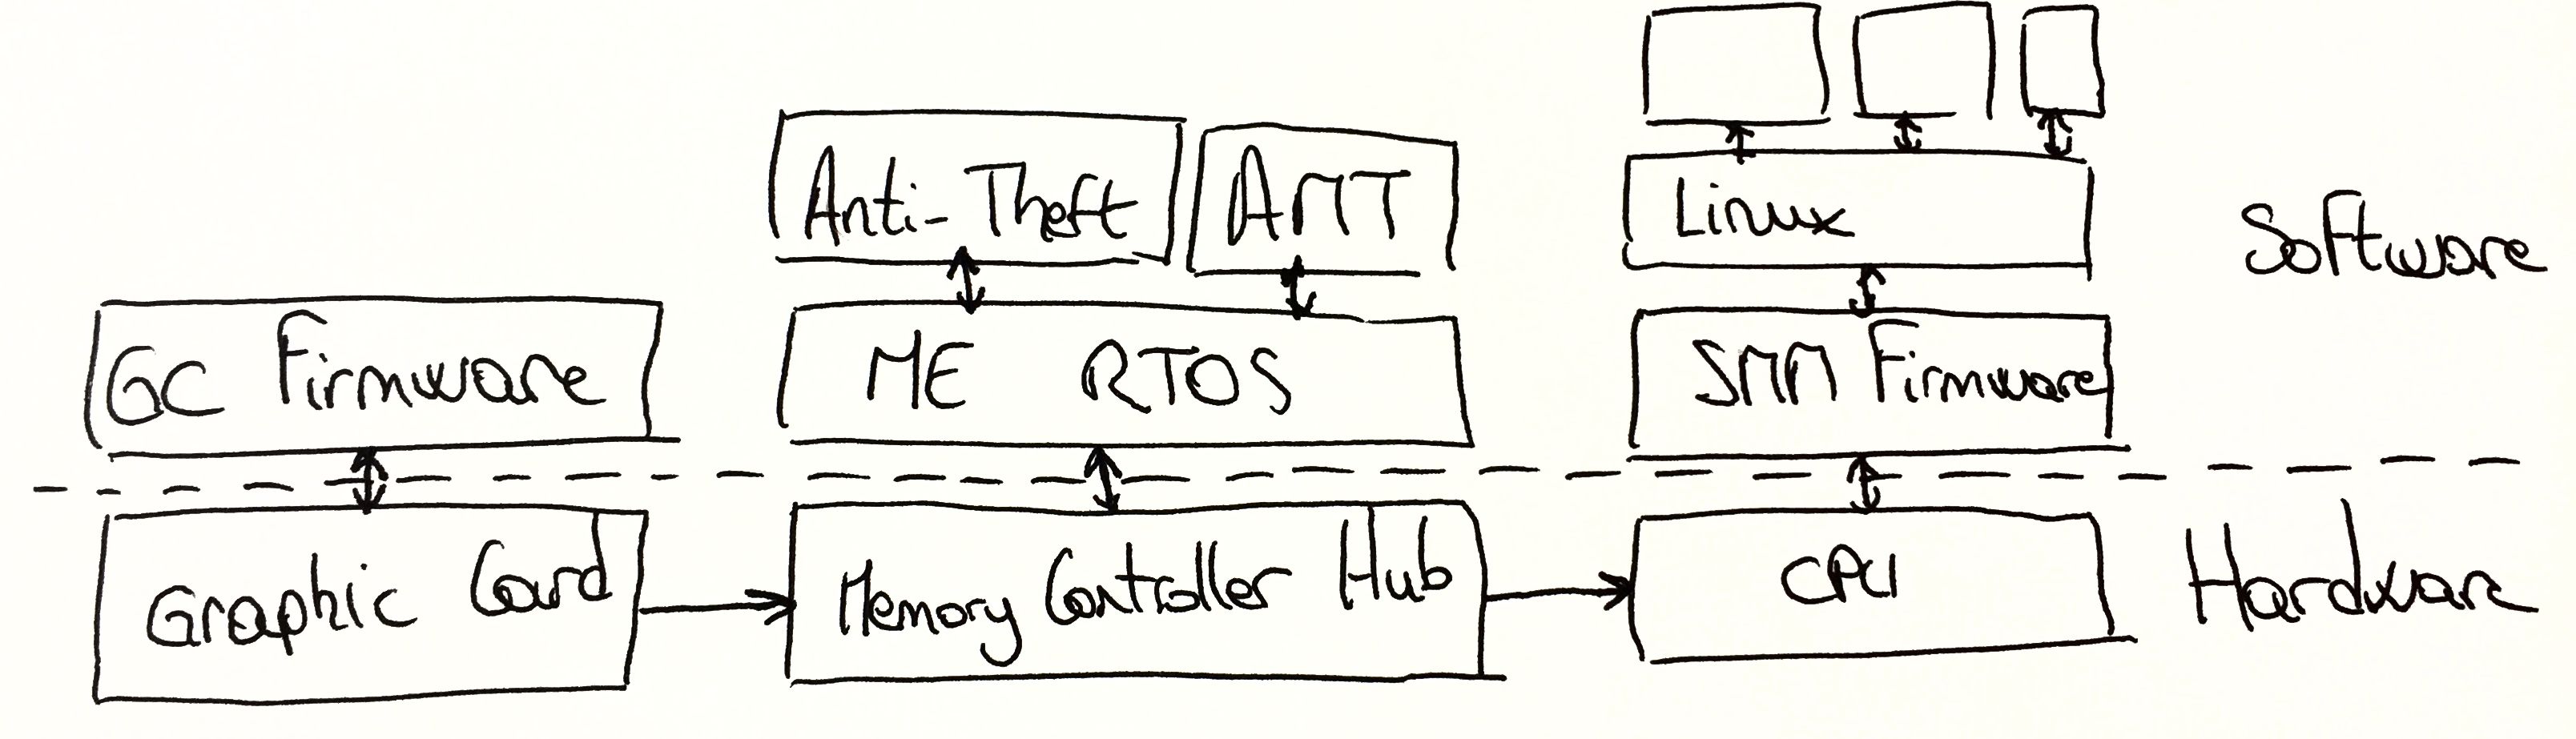 Anti-Theft
AMT
Linux
Software
GC Firmware
ME RTOS
SMM Firmware
Graphic Card
Memory Controller Hub
CPU
Hardware